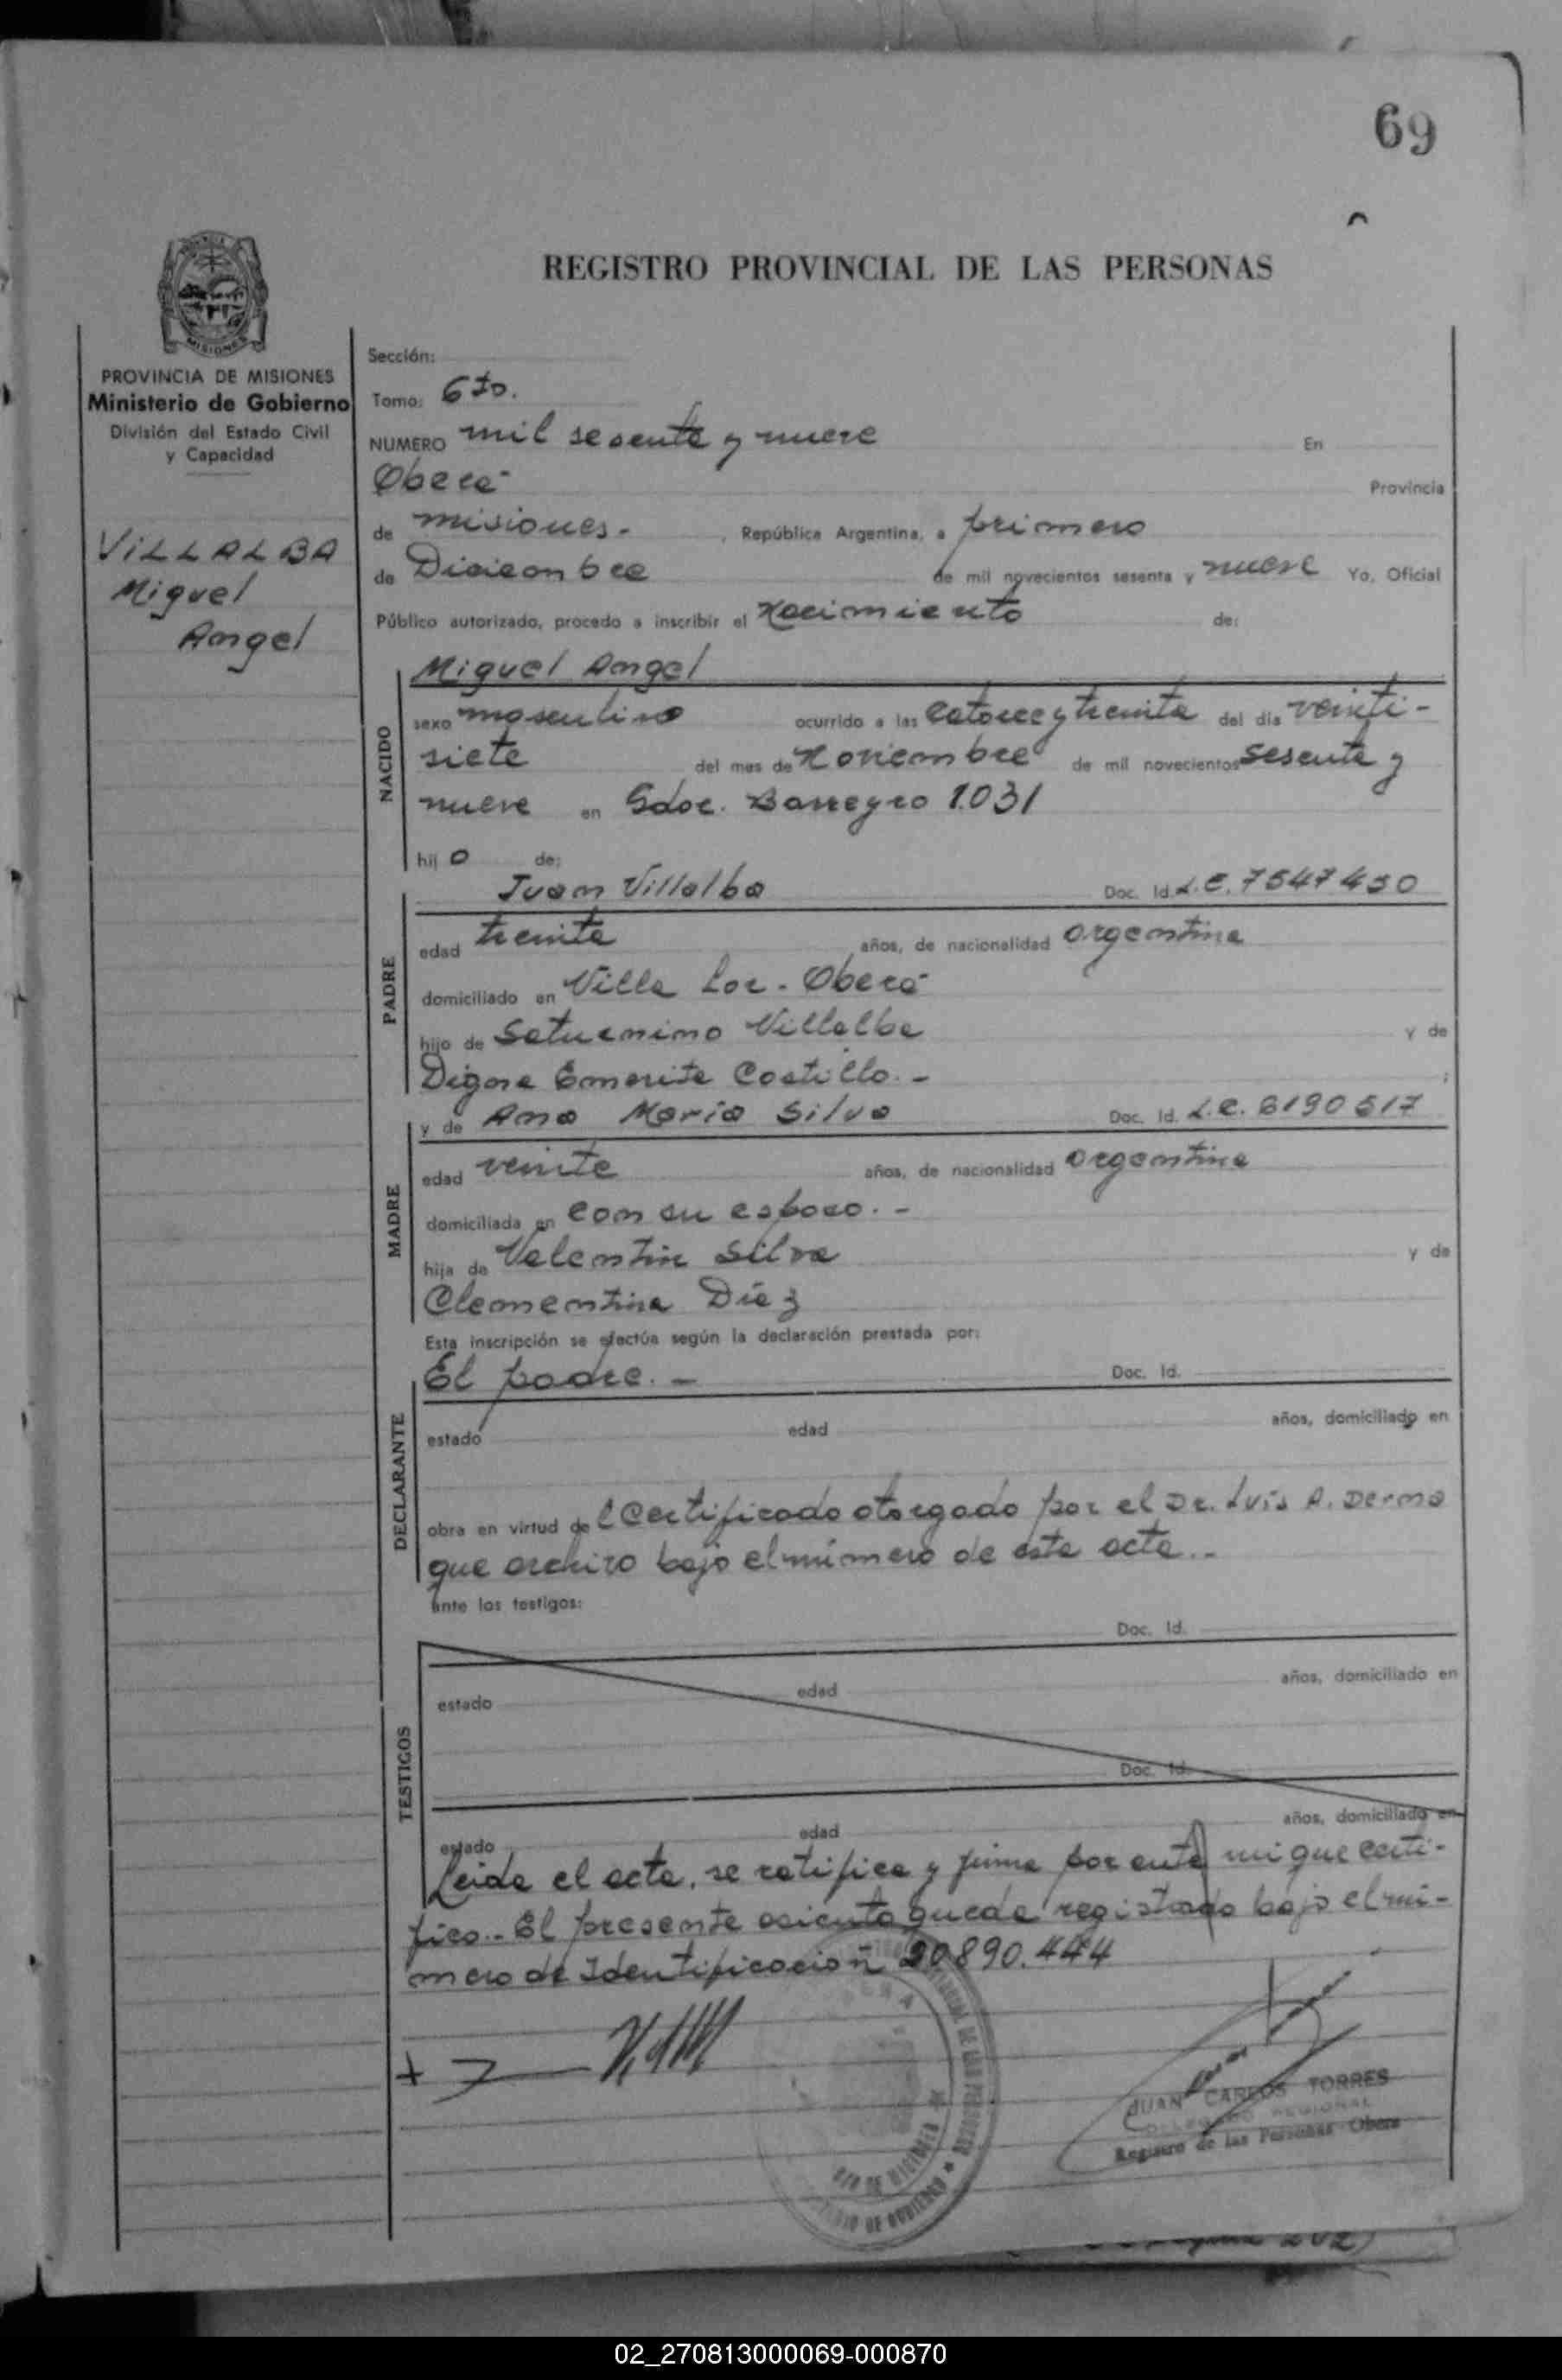 69
REGISTRO PROVINCIAL DE LAS PERSONAS
MISIONES
PROVINCIA DE MISIONES
Ministerio de Gobierno
División del Estado Civil
y Capacidad
VILLALBA
Miguel
Angel
Sección:
Tomo: 6to.
NUMERO mil sesenta y nueve En
Oberá Provincia
de misiones.- , República Argentina, a primero
de Diciembre de mil novecientos sesenta y nueve Yo, Oficial
Público autorizado, procedo a inscribir el Nacimiento de:
Miguel Angel
NACIDO
sexo masculino ocurrido a las catorce y treinta del día veinti-
siete del mes de Noviembre de mil novecientos sesenta y
nueve en Gdor. Barreyro 1.031
hij o de:
Juan Villalba Doc. Id. L.E. 7547450
PADRE
edad treinta años, de nacionalidad argentina
domiciliado en Villa Lor. - Oberá
hijo de Saturnino Villalba y de
Digna Emerita Castillo.- ;
y de Ana María Silva Doc. Id. L.C. 6190517
MADRE
edad veinte años, de nacionalidad argentina
domiciliada en con su esposo.-
hija de Valentin Silva y de
Clementina Díez
Esta inscripción se efectúa según la declaración prestada por:
El padre.- Doc. Id.
DECLARANTE
estado edad años, domiciliado en
obra en virtud de l certificado otorgado por el Dr. Luis A. Derna
que archivo bajo el número de esta acta.-
ante los testigos:
Doc. Id.
TESTIGOS
estado edad años, domiciliado en
Doc. Id.
estado edad años, domiciliado en
Leida el acta, se ratifica y firma por ente mi que certi-
fico.- El presente asiento queda registrado bajo el nú-
mero de Identificación 20.890.444
JUAN CARLOS TORRES
DELEGADO REGIONAL
Registro de las Personas Obera
02_270813000069-000870